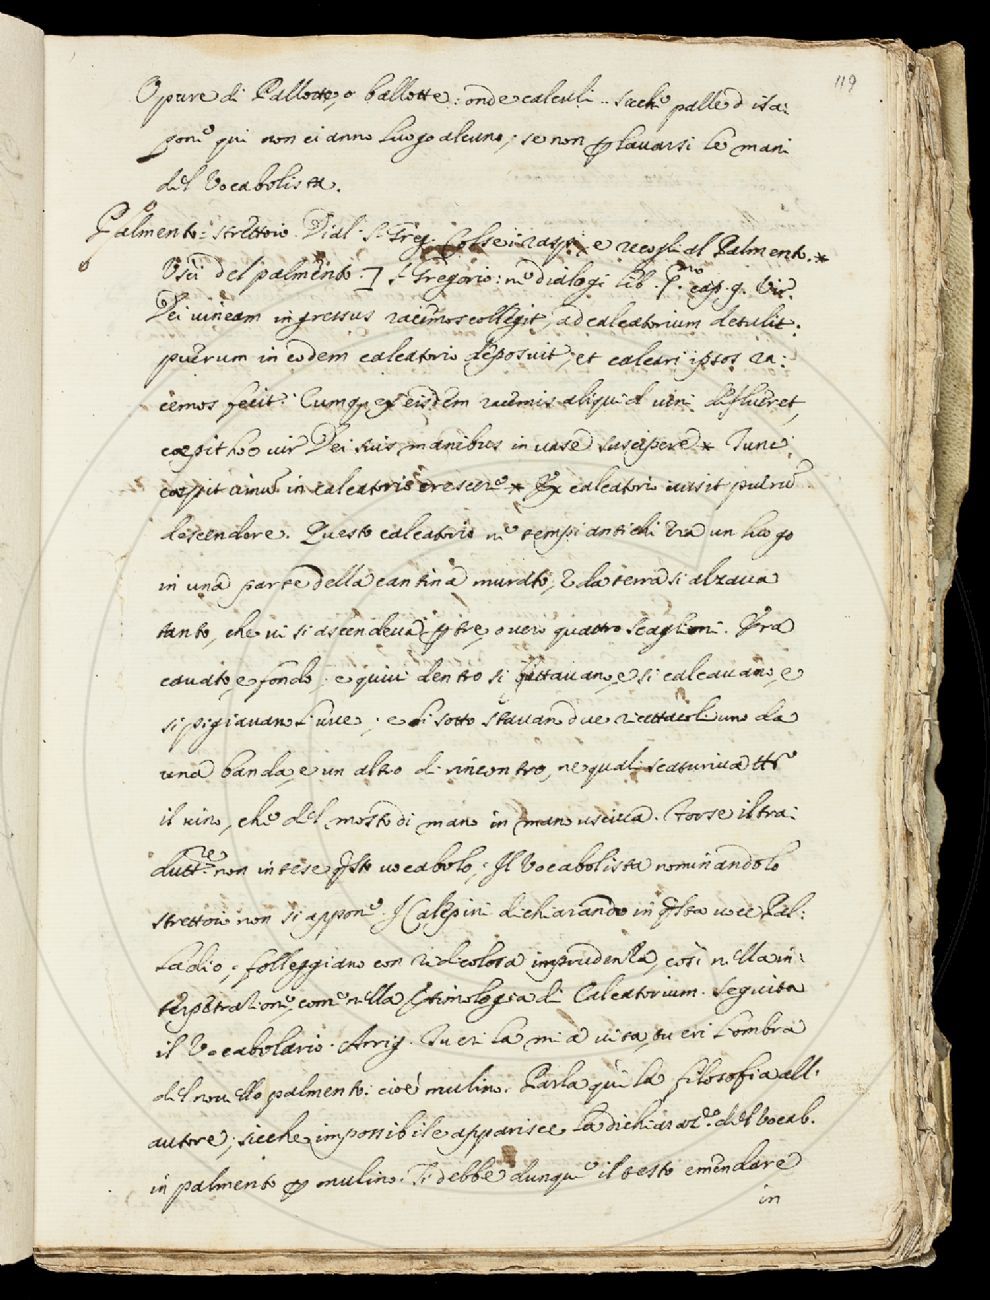 119
Opure di Pallotte, o ballotte: onde calculi.. Sicche palle d isa:
pone qui non ci anno luogo alcuno; se non p lauarsi le mani
del Vocabolista.
Palmento: strettoio. Dial. S. Greg. Colse i raspi, e recogli al Palmento. *
Uscì del palmento.] S. Gregorio: ne dialogi lib. P.mo cap. 9. Vir.
Dei uineam ingressus racemos collegit, ad calcatorium detulit:
puerum in eodem calcatorio deposuit, et calcari ipsos ra:
cemos fecit. Cumq. ex eisdem racemis aliquid uini deflueret,
cœpit hoc uir Dei suis manibus in uase suscipere * Tunc
cœpit uinum in calcatorio crescere * Ex calcatorio iussit puerū
descendere. Questo calcatorio ne tempi antichi era un luogo
in una parte della cantina murato, e da terra si alzaua
tanto, che ui si ascendeua p tre, o uero quattro scaglioni. Era
cauato, e fondo: e quiui dentro si gettauano, e si calcauano, e
si pigiauano l'uue; e di sotto stauan due ricettacoli uno da
una banda, e un altro di rincontro, ne quali scaturiua
il uino, che del mosto di mano in mano usciua. Forse il tra:
dutt.re non intese q.sto uocabolo. Il Vocabolista nominandolo
strettoio non si appone. I Calepini dichiarando in q.sta uoce Pal:
ladio, folleggiano con ridicolosa imprudenza, così nella in:
terpetrazione, come nella Etimologia di Calcatorium. Seguita
il Vocabolario. Arrig. Tu eri la mia uita, tu eri l'ombra
del nouello palmento: cioè mulino. Parla quì la filosofia all'
autore; sicche impossibile apparisce la dichiaraz.e del Vocab.
in palmento p mulino. Si debbe dunque il testo emendare
in